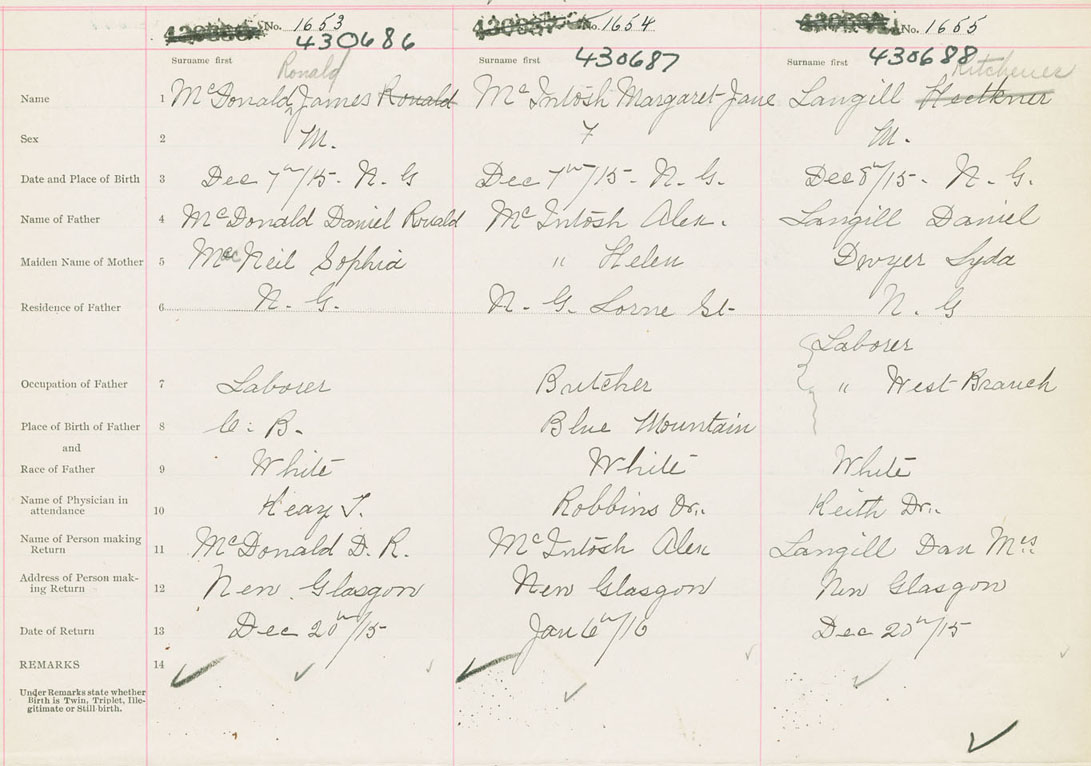 No. 1653 No. 1654 No. 1655
430686 430687 430688
Surname first Surname first Surname first
Ronald Kitchener
Name 1 McDonald, James Ronald McIntosh Margaret Jane Langill
Sex 2 M. F M.
Date and Place of Birth 3 Dec 7th/15 - N. G Dec 7th/15 - N. G. Dec 8th/15 - N. G.
Name of Father 4 McDonald Daniel Ronald McIntosh Alex. Langill Daniel
Maiden Name of Mother 5 MacNeil Sophia " Helen Dwyer Lyda
Residence of Father 6 N. G. N. G. Lorne St- N. G
Laborer
Occupation of Father 7 Laborer Butcher " West Branch
Place of Birth of Father 8 C. B. Blue Mountain
and
Race of Father 9 White White White
Name of Physician in
attendance 10 Keay T. Robbins Dr. Keith Dr.
Name of Person making
Return 11 McDonald D. R. McIntosh Alex Langill Dan Mrs
Address of Person mak-
ing Return 12 New Glasgow New Glasgow New Glasgow
Date of Return 13 Dec 20th/15 Jan 6th/16 Dec 20th/15
REMARKS 14
Under Remarks state whether
Birth is Twin, Triplet, Ille-
gitimate or Still-birth.